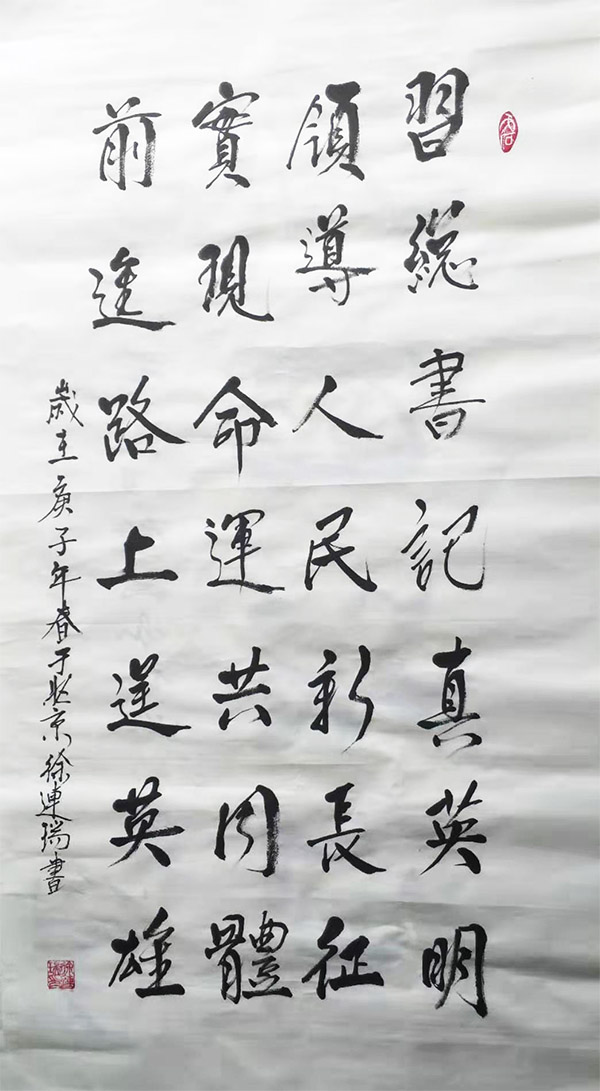 習總書記真英明
領導人民新長征
實現命運共同體
前途路上逞英雄
歲在庚子年春于北京徐連瑞書